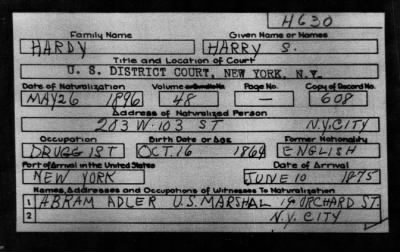 H630
Family Name Given Name or Names
HARDY HARRY S.
Title and Location of Court
U. S. DISTRICT COURT, NEW YORK, N.Y.
Date of Naturalization Volume or Bundle No. Page No. Copy of Record No.
MAY 26 1896 48 — 608
Address of Naturalized Person
203 W. 103 ST N.Y. CITY
Occupation Birth Date or Age Former Nationality
DRUGGIST OCT. 16 1864 ENGLISH
Port of Arrival in the United States Date of Arrival
NEW YORK JUNE 10 1875
Names, Addresses and Occupations of Witnesses To Naturalization
1 ABRAM ADLER U.S. MARSHAL 19 ORCHARD ST.
2 N.Y. CITY